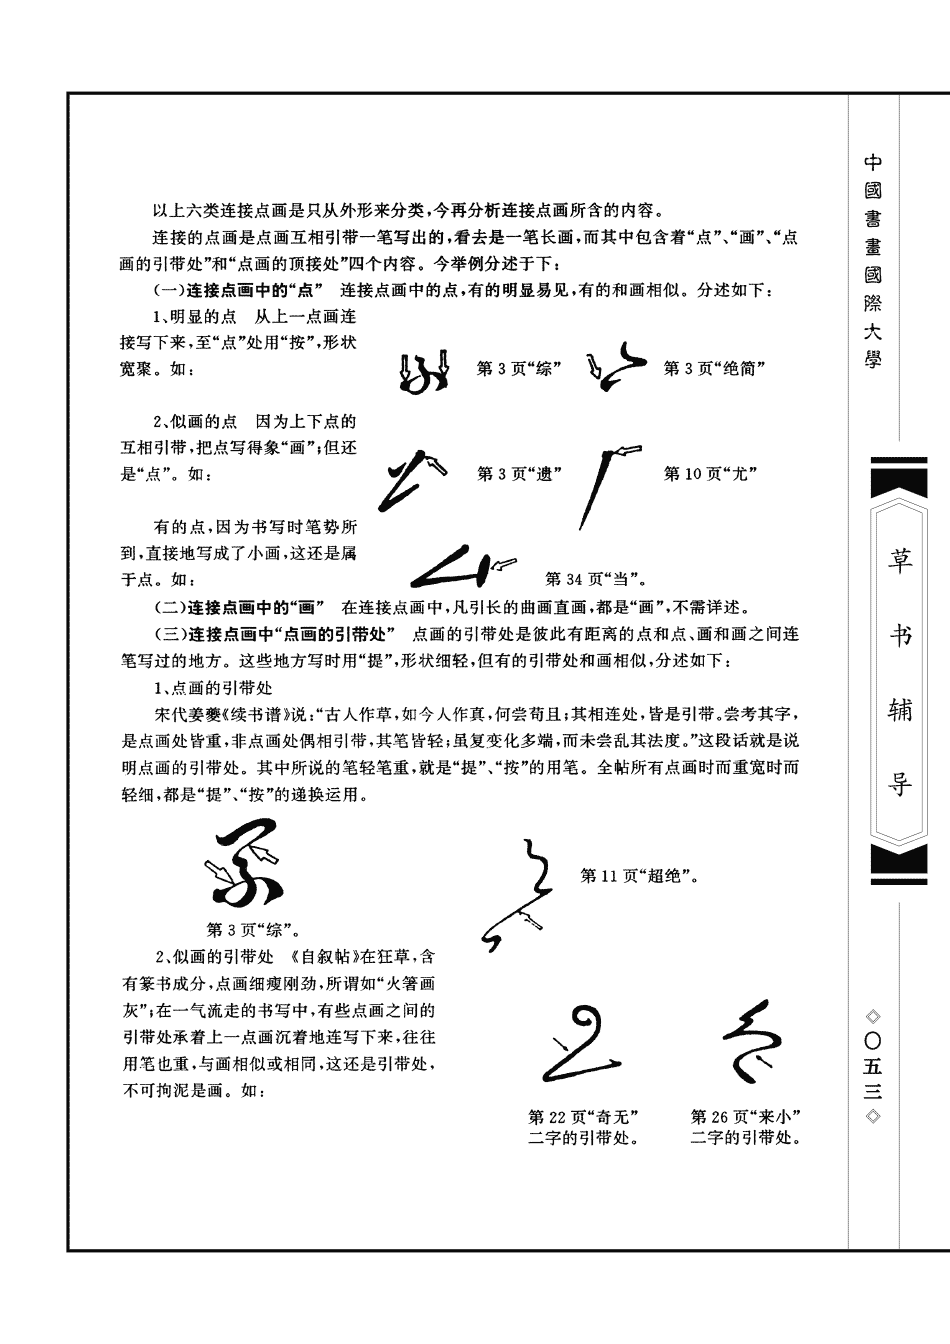 以上六类连接点画是只从外形来分类，今再分析连接点画所含的内容。
连接的点画是点画互相引带一笔写出的，看去是一笔长画，而其中包含着“点”、“画”、“点
画的引带处”和“点画的顶接处”四个内容。今举例分述于下：
（一）连接点画中的“点”　连接点画中的点，有的明显易见，有的和画相似。分述如下：
1、明显的点　从上一点画连
接写下来，至“点”处用“按”，形状
宽聚。如：
第 3 页“综”
第 3 页“绝简”
2、似画的点　因为上下点的
互相引带，把点写得象“画”；但还
是“点”。如：
第 3 页“遗”
第 10 页“尤”
有的点，因为书写时笔势所
到，直接地写成了小画，这还是属
于点。如：
第 34 页“当”。
（二）连接点画中的“画”　在连接点画中，凡引长的曲画直画，都是“画”，不需详述。
（三）连接点画中“点画的引带处”　点画的引带处是彼此有距离的点和点、画和画之间连
笔写过的地方。这些地方写时用“提”，形状细轻，但有的引带处和画相似，分述如下：
1、点画的引带处
宋代姜夔《续书谱》说：“古人作草，如今人作真，何尝苟且；其相连处，皆是引带。尝考其字，
是点画处皆重，非点画处偶相引带，其笔皆轻；虽复变化多端，而未尝乱其法度。”这段话就是说
明点画的引带处。其中所说的笔轻笔重，就是“提”、“按”的用笔。全帖所有点画时而重宽时而
轻细，都是“提”、“按”的递换运用。
第 3 页“综”。
第 11 页“超绝”。
2、似画的引带处　《自叙帖》在狂草，含
有篆书成分，点画细瘦刚劲，所谓如“火箸画
灰”；在一气流走的书写中，有些点画之间的
引带处承着上一点画沉着地连写下来，往往
用笔也重，与画相似或相同，这还是引带处，
不可拘泥是画。如：
第 22 页“奇无”
二字的引带处。
第 26 页“来小”
二字的引带处。
中國書畫國際大學
草书辅导
◇〇五三◇